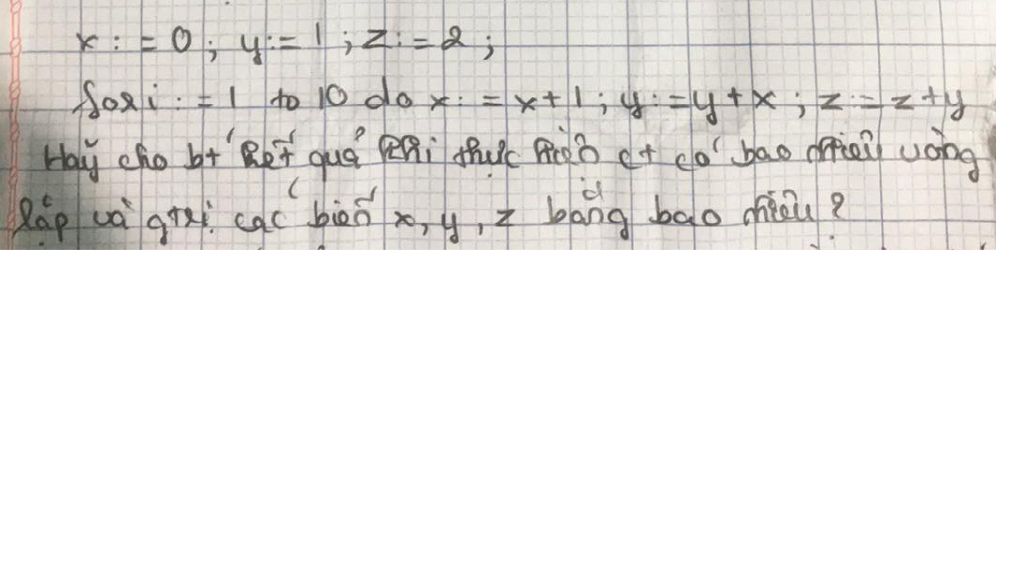 x := 0; y := 1; z := 2;
for i := 1 to 10 do x := x+1; y := y+x; z := z+y
Hãy cho bt kết quả khi thực hiện ct có bao nhiêu vòng
lặp và gtrị các biến x, y, z bằng bao nhiêu?